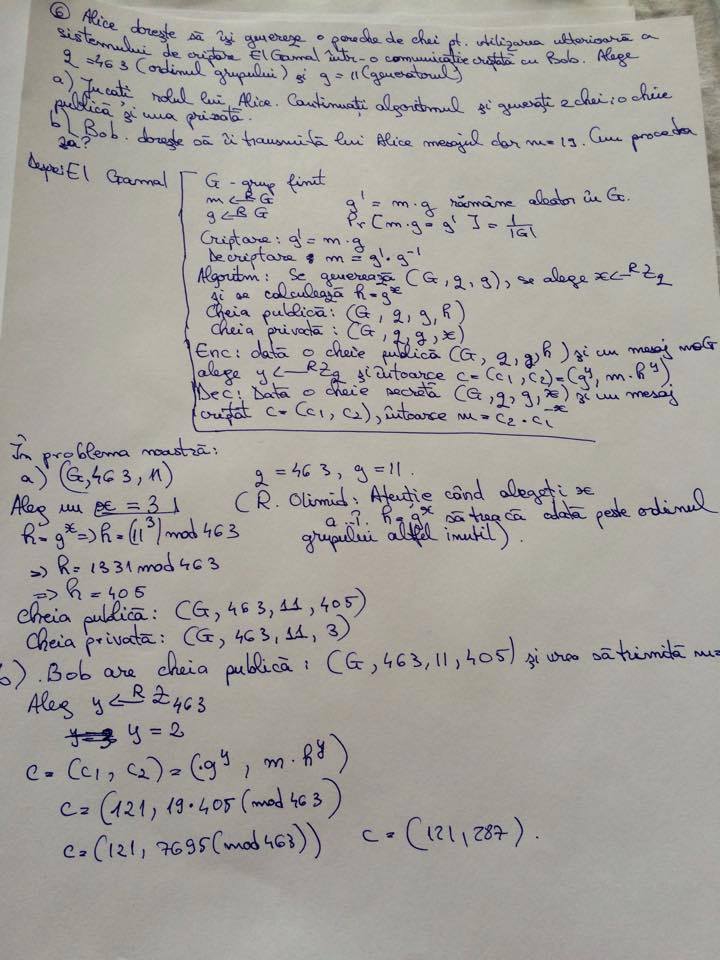 ⑥ Alice dorește să își genereze o pereche de chei pt. utilizarea ulterioară a
sistemului de criptare ElGamal într-o comunicație criptată cu Bob. Alege
q = 463 (ordinul grupului) și g = 11 (generatorul)
a) Jucați rolul lui Alice. Continuați algoritmul și generați 2 chei: o cheie
publică și una privată.
b) Bob dorește să îi transmită lui Alice mesajul clar m = 19. Cum procedea
ză?
Despre El Gamal
G - grup finit
m ←R G   g' = m · g rămâne aleator în G.
g ←R G   Pr [m · g = g'] = 1/|G|
Criptare: g' = m · g
Decriptare: m = g' · g^-1
Algoritm: Se generează (G, q, g), se alege x ←R Zq
și se calculează h = g^x
Cheia publică: (G, q, g, h)
Cheia privată: (G, q, g, x)
Enc: dată o cheie publică (G, q, g, h) și un mesaj m∈G
alege y ←R Zq și întoarce c = (c1, c2) = (g^y, m · h^y)
Dec: Dată o cheie secretă (G, q, g, x) și un mesaj
criptat c = (c1, c2), întoarce m = c2 · c1^-x
În problema noastră:
a) (G, 463, 11)   q = 463, g = 11.
Aleg un x = 3   (R. Olimid: Atenție când alegeți x
a.î. h = g^x să treacă odată peste ordinul
grupului altfel inutil).
h = g^x => h = (11^3) mod 463
=> h = 1331 mod 463
=> h = 405
Cheia publică: (G, 463, 11, 405)
Cheia privată: (G, 463, 11, 3)
b). Bob are cheia publică: (G, 463, 11, 405) și vrea să trimită m=
Aleg y ←R Z463
y = 2
c = (c1, c2) = (g^y, m · h^y)
c = (121, 19 · 405 (mod 463)
c = (121, 7695 (mod 463))   c = (121, 287).